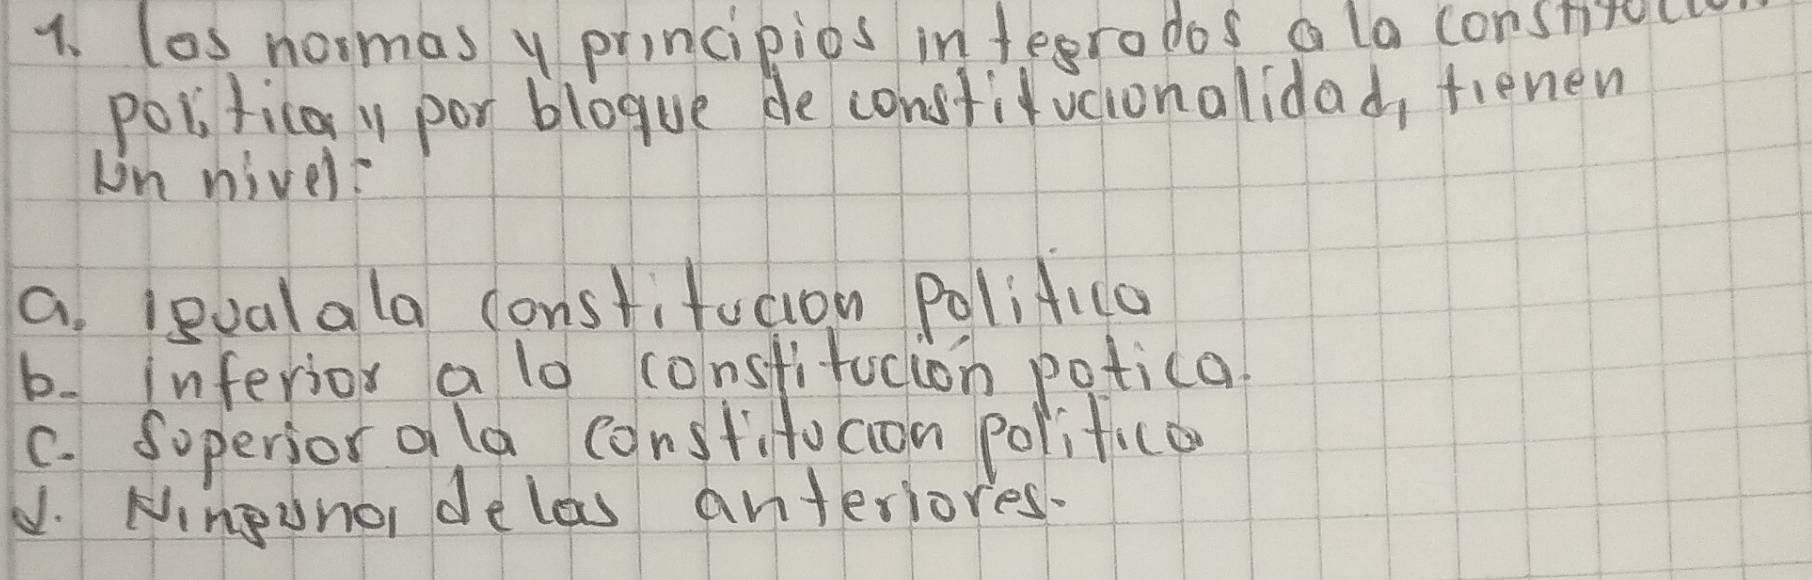 1. los normas y principios integrodos a la constitucion
política y por bloque de constitucionalidad, tienen
Un nivel:
a. igual a la constitucion Politica
b. inferior a la constitución potica.
c. Superior a la constitucion politica
d. Ninguna de las anteriores.